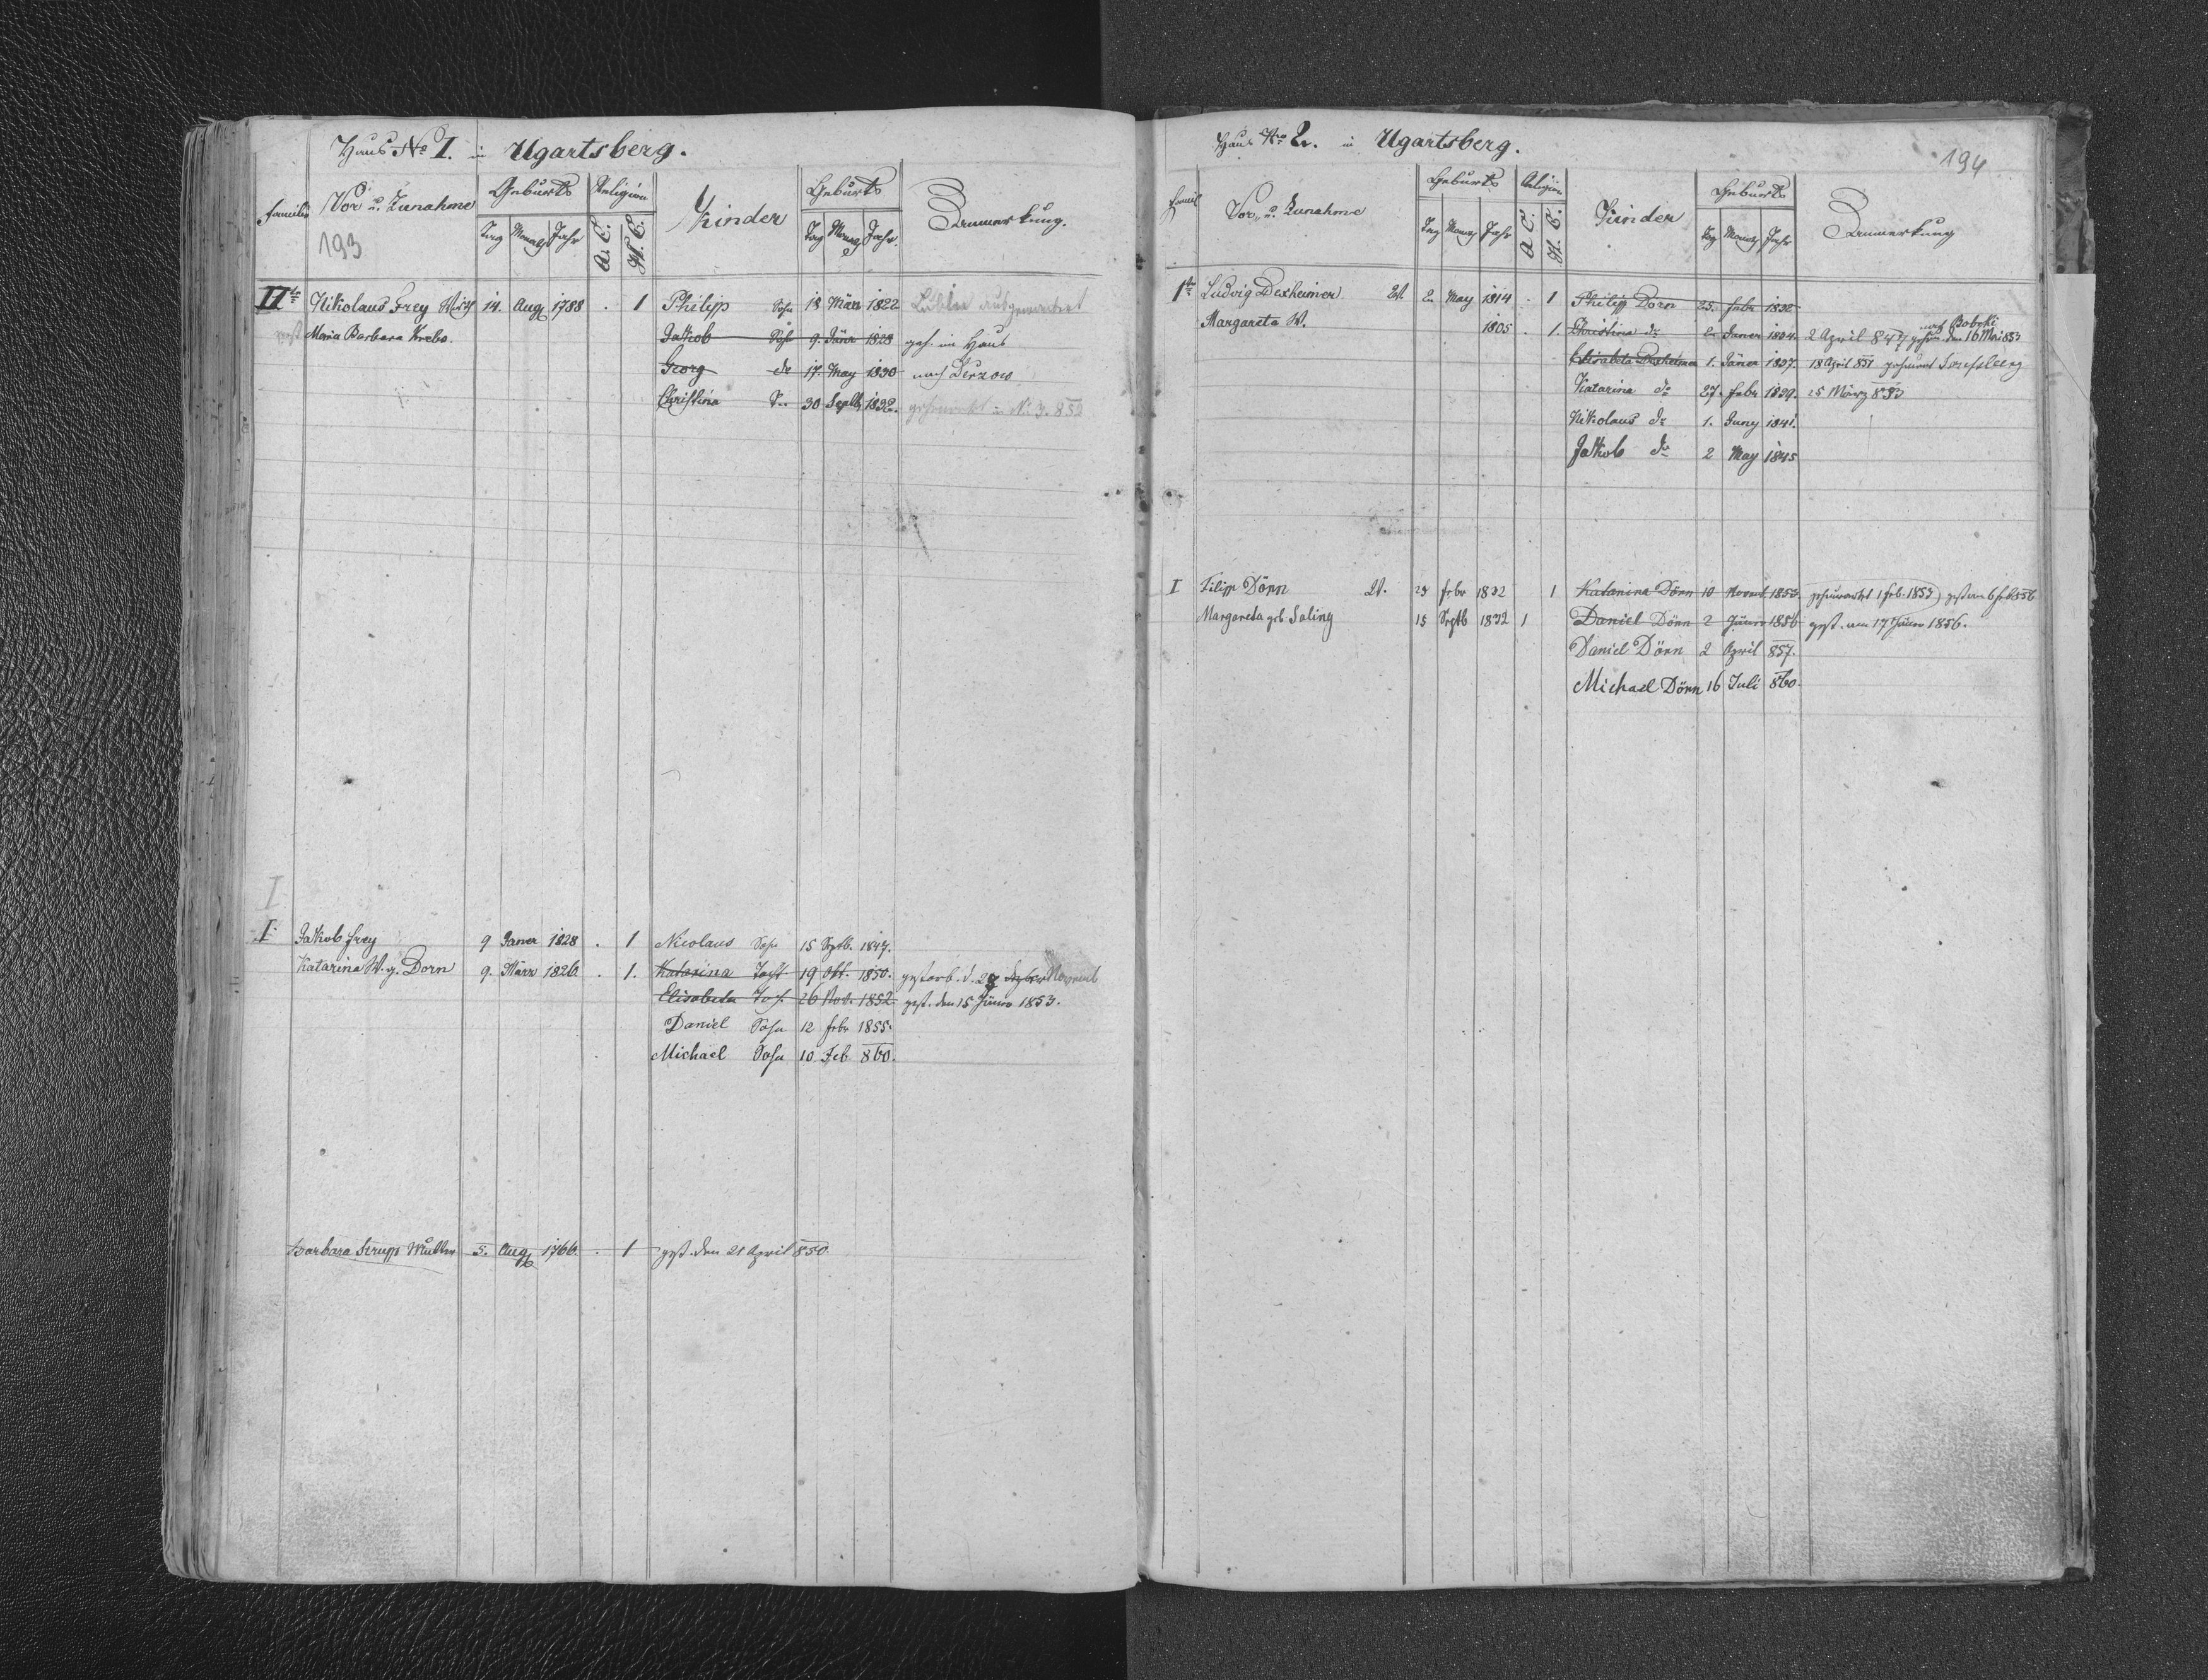 Haus No I. in Ugartsberg.
Familie Vor u. Zunahme Geburts Religion Kinder Geburts Anmerkung.
193 Tag Monat Jahr A. C. H. C. Tag Monat Jahr.
II te Nikolaus Frey Witt 14. Aug 1788 . 1 Philipp Sohn 18 März 1822 ausgewandert
Maria Barbara Krebs. Jakob Sohn 9. Jäner 1828 geh. im Haus
Georg do 17. May 1830 nach
Christina 30 Septb 1832. geheurathet in No. 3. 852
I
I. Jakob Frey 9 Janer 1828 . 1 Nicolaus Sohn 15 Septb. 1847.
Katarina W. g. Dorn 9. März 1826 . 1. Katarina Tocht 19 Okt. 1850. gestorb. d. 28 Dezber Novemb
Elisabeta Toch. 26 Nov. 1852 gest. den 15 Jäner 1853.
Daniel Sohn 12 febr 1855.
Michael Sohn 10 Feb 860.
Barbara Krupp 5. Aug 1766. . 1 gest. den 21 April 850.
Haus Nro 2. in Ugartsberg.
194
Famil Vor- u. Zunahme Geburts Religion Kinder Geburts Anmerkung
Tag Monat Jahr A. C. H. C. Tag Monat Jahr
1te Ludvig Dexheimer W. 2. May 1814 . 1 Philipp Dorn 25. febr 1832
Margareta W. 1805 . 1. Christina do 2. Janer 1834. 2 April 847 geheu den 16 Mai 853 nach
Elisabeta Dexheimer 1. Jäner 1837. 18 April 851 geheurat Josefsberg
Katarina do 27. febr 1839. 25 März 853
Nikolaus do 1. Juny 1841.
Jakob do 2 May 1845
I Filipp Dörn W. 23 febr 1832 1 Katarina Dörn 10 Novemb 1853. geheurathet 1 feb. 1853) gest am 6 feb 856
Margareta geb Saling 15 Septb 1832 1 Daniel Dörn 2 Jäner 1856 gest. am 17 Jäner 1856.
Daniel Dörn 2 April 857.
Michael Dörn 16 Juli 860.